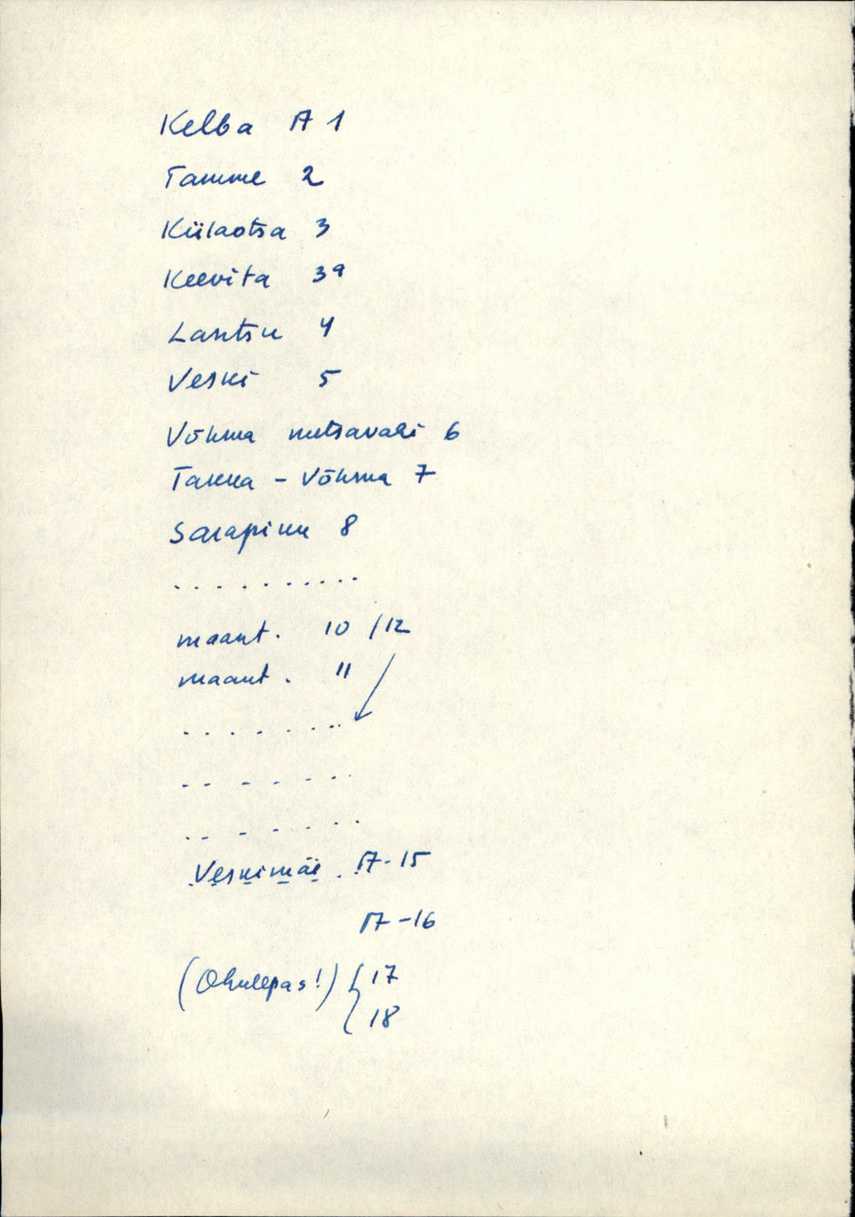 Kelba A 1
Tamme 2
Külaotsa 3
Keevita 3a
Lantsu 4
Veski 5
Võhma metsavahi 6
Takka - Võhma 7
Sarapiku 8
. . . . . . . . . .
maant. 10 /12
maant. 11
. . . . . . . .
. . - . . - .
. . - . . - .
Veskimäe . A-15
A-16
(Ohulepas!) { 17
18